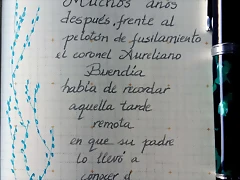 Muchos años
después, frente al
pelotón de fusilamiento
el coronel Aureliano
Buendía
había de recordar
aquella tarde
remota
en que su padre
lo llevó a
conocer el